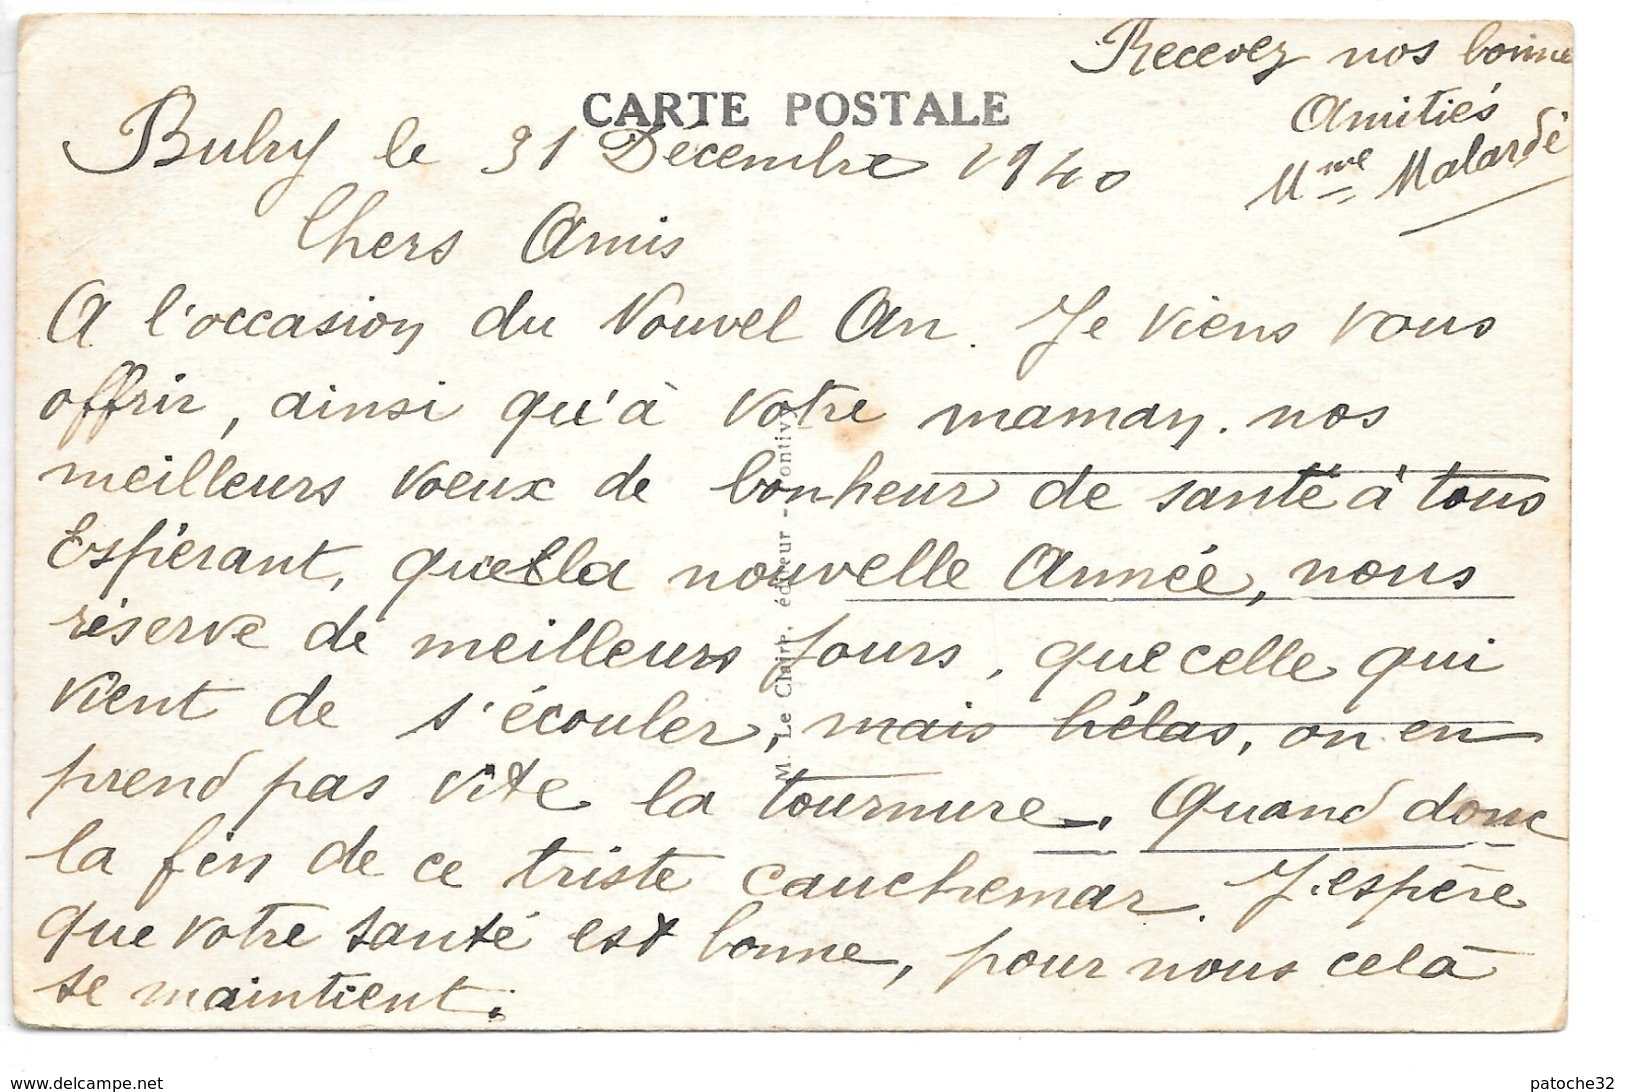 Recevez nos bonne
Amitiés
Mme Malardé
CARTE POSTALE
Bubry le 31 Décembre 1940
Chers Amis
A l'occasion du Nouvel An. Je viens vous
offrir, ainsi qu'à votre maman. nos
meilleurs voeux de bonheur de santé à tous
Espérant, que la nouvelle Année, nous
réserve de meilleurs Jours, que celle qui
vient de s'écouler, mais hélas, on en
prend pas vite la tournure. Quand donc
la fin de ce triste cauchemar. J'espère
que votre santé est bonne, pour nous celà
se maintient.
M. Le Clairr. éditeur - Pontivy
www.delcampe.net
patoche32